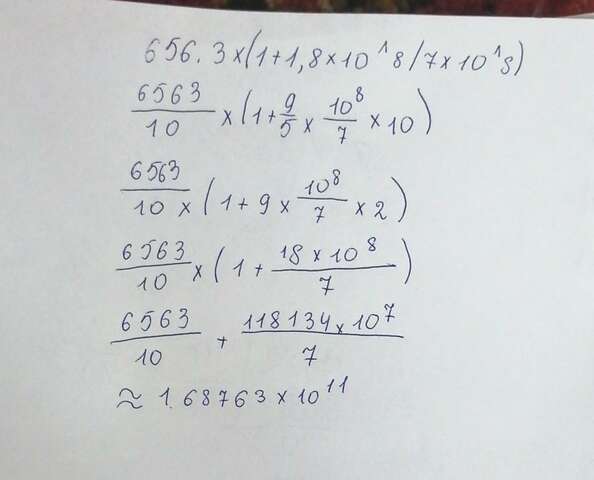 656.3×(1+1,8×10¹8/7×10¹8)
6563/10 × (1+9/5 × 10⁸/7 × 10)
6563/10 × (1+9 × 10⁸/7 × 2)
6563/10 × (1+ 18×10⁸/7)
6563/10 + 118134×10⁷/7
≈ 1.68763×10¹¹